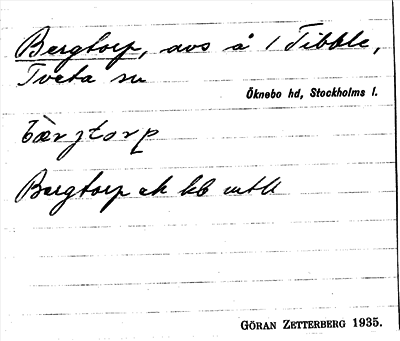 Bergtorp, avs å 1 Tibble,
Tveta sn
Öknebo hd, Stockholms l.
bærjtorp
Bergtorp ek kb mtl
GÖRAN ZETTERBERG 1935.